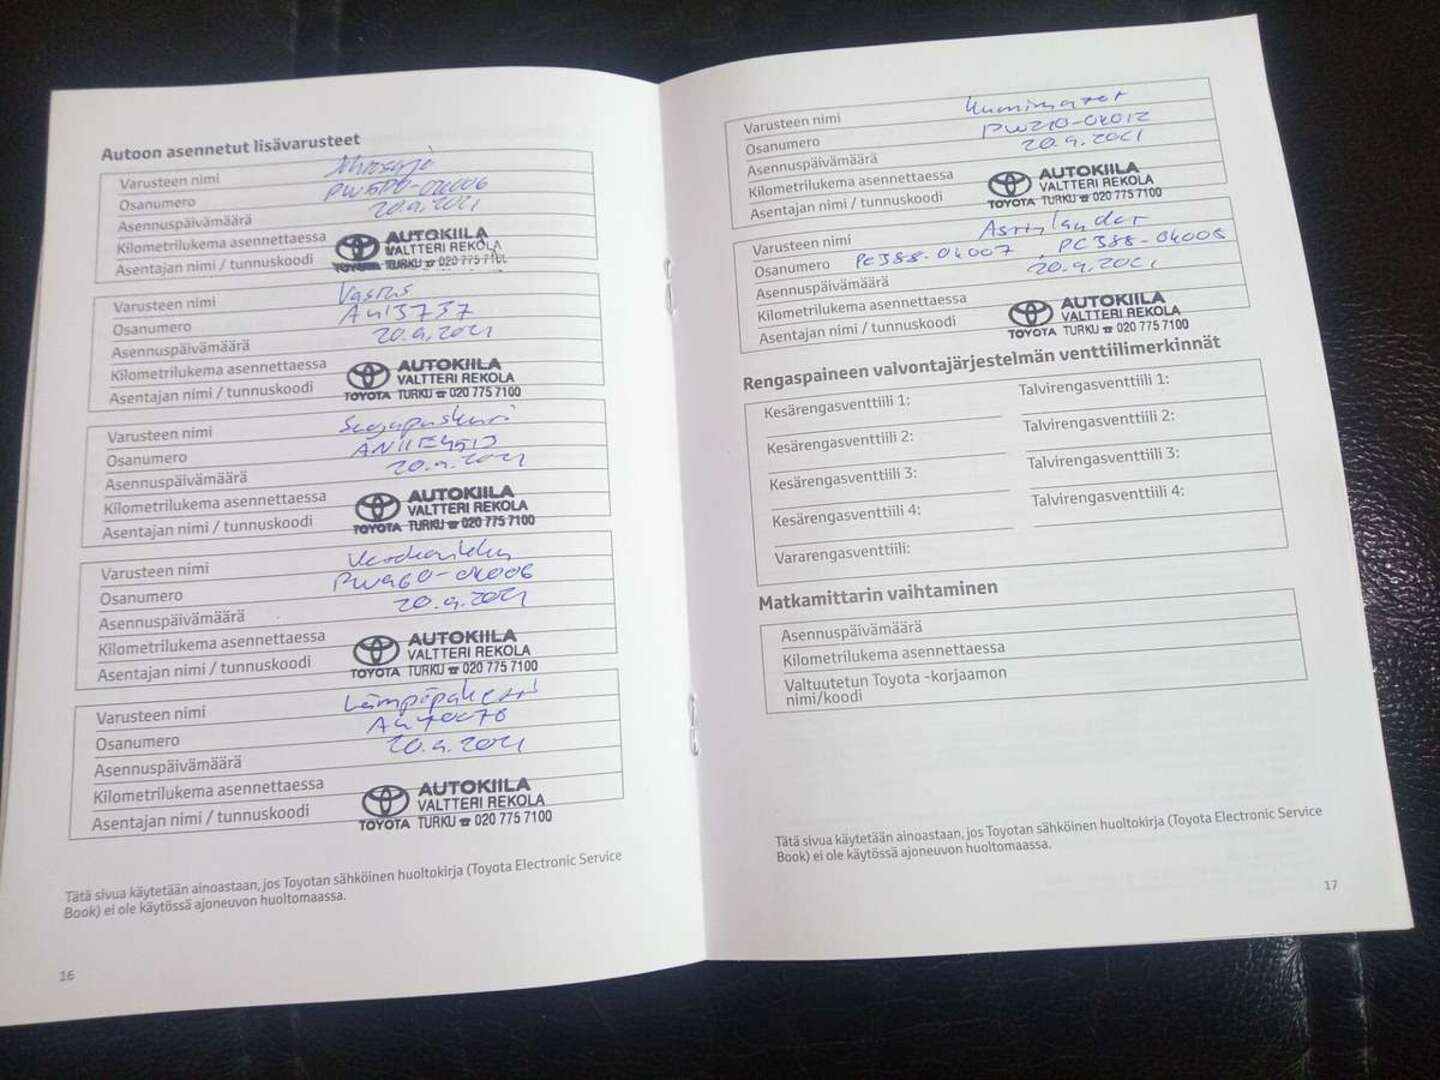 Autoon asennetut lisävarusteet
Varusteen nimi
Osanumero PW5P0-0K006
Asennuspäivämäärä 20.9.2021
Kilometrilukema asennettaessa
Asentajan nimi / tunnuskoodi
AUTOKIILA
VALTTERI REKOLA
TOYOTA TURKU ☎ 020 775 7100
Varusteen nimi Vastus
Osanumero A413737
Asennuspäivämäärä 20.9.2021
Kilometrilukema asennettaessa
Asentajan nimi / tunnuskoodi
AUTOKIILA
VALTTERI REKOLA
TOYOTA TURKU ☎ 020 775 7100
Varusteen nimi Suojapuskuri
Osanumero
Asennuspäivämäärä 20.9.2021
Kilometrilukema asennettaessa
Asentajan nimi / tunnuskoodi
AUTOKIILA
VALTTERI REKOLA
TOYOTA TURKU ☎ 020 775 7100
Varusteen nimi Vetokoukku
Osanumero PW960-0K006
Asennuspäivämäärä 20.9.2021
Kilometrilukema asennettaessa
Asentajan nimi / tunnuskoodi
AUTOKIILA
VALTTERI REKOLA
TOYOTA TURKU ☎ 020 775 7100
Varusteen nimi Lämpöpaketti
Osanumero
Asennuspäivämäärä 20.9.2021
Kilometrilukema asennettaessa
Asentajan nimi / tunnuskoodi
AUTOKIILA
VALTTERI REKOLA
TOYOTA TURKU ☎ 020 775 7100
Tätä sivua käytetään ainoastaan, jos Toyotan sähköinen huoltokirja (Toyota Electronic Service
Book) ei ole käytössä ajoneuvon huoltomaassa.
16
Varusteen nimi Kumimatot
Osanumero PW210-0K012
Asennuspäivämäärä 20.9.2021
Kilometrilukema asennettaessa
Asentajan nimi / tunnuskoodi
AUTOKIILA
VALTTERI REKOLA
TOYOTA TURKU ☎ 020 775 7100
Varusteen nimi
Osanumero PC388-0K007, PC388-0K008
Asennuspäivämäärä 20.9.2021
Kilometrilukema asennettaessa
Asentajan nimi / tunnuskoodi
AUTOKIILA
VALTTERI REKOLA
TOYOTA TURKU ☎ 020 775 7100
Rengaspaineen valvontajärjestelmän venttiilimerkinnät
Kesärengasventtiili 1: Talvirengasventtiili 1:
Kesärengasventtiili 2: Talvirengasventtiili 2:
Kesärengasventtiili 3: Talvirengasventtiili 3:
Kesärengasventtiili 4: Talvirengasventtiili 4:
Vararengasventtiili:
Matkamittarin vaihtaminen
Asennuspäivämäärä
Kilometrilukema asennettaessa
Valtuutetun Toyota -korjaamon
nimi/koodi
Tätä sivua käytetään ainoastaan, jos Toyotan sähköinen huoltokirja (Toyota Electronic Service
Book) ei ole käytössä ajoneuvon huoltomaassa.
17